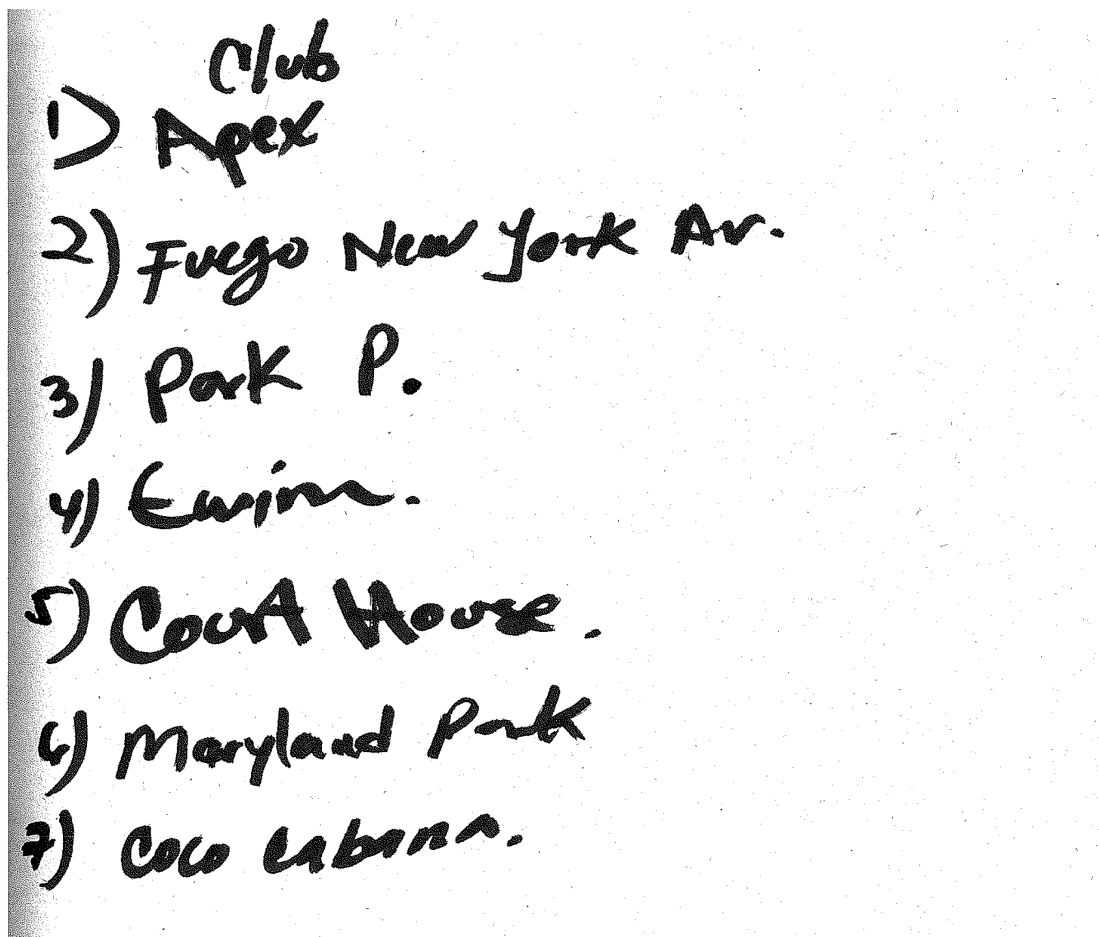 Club
1) Apex
2) Fuego New York Av.
3) Park P.
4)
5) Court House.
6) Maryland Park
7) Coco cabana.